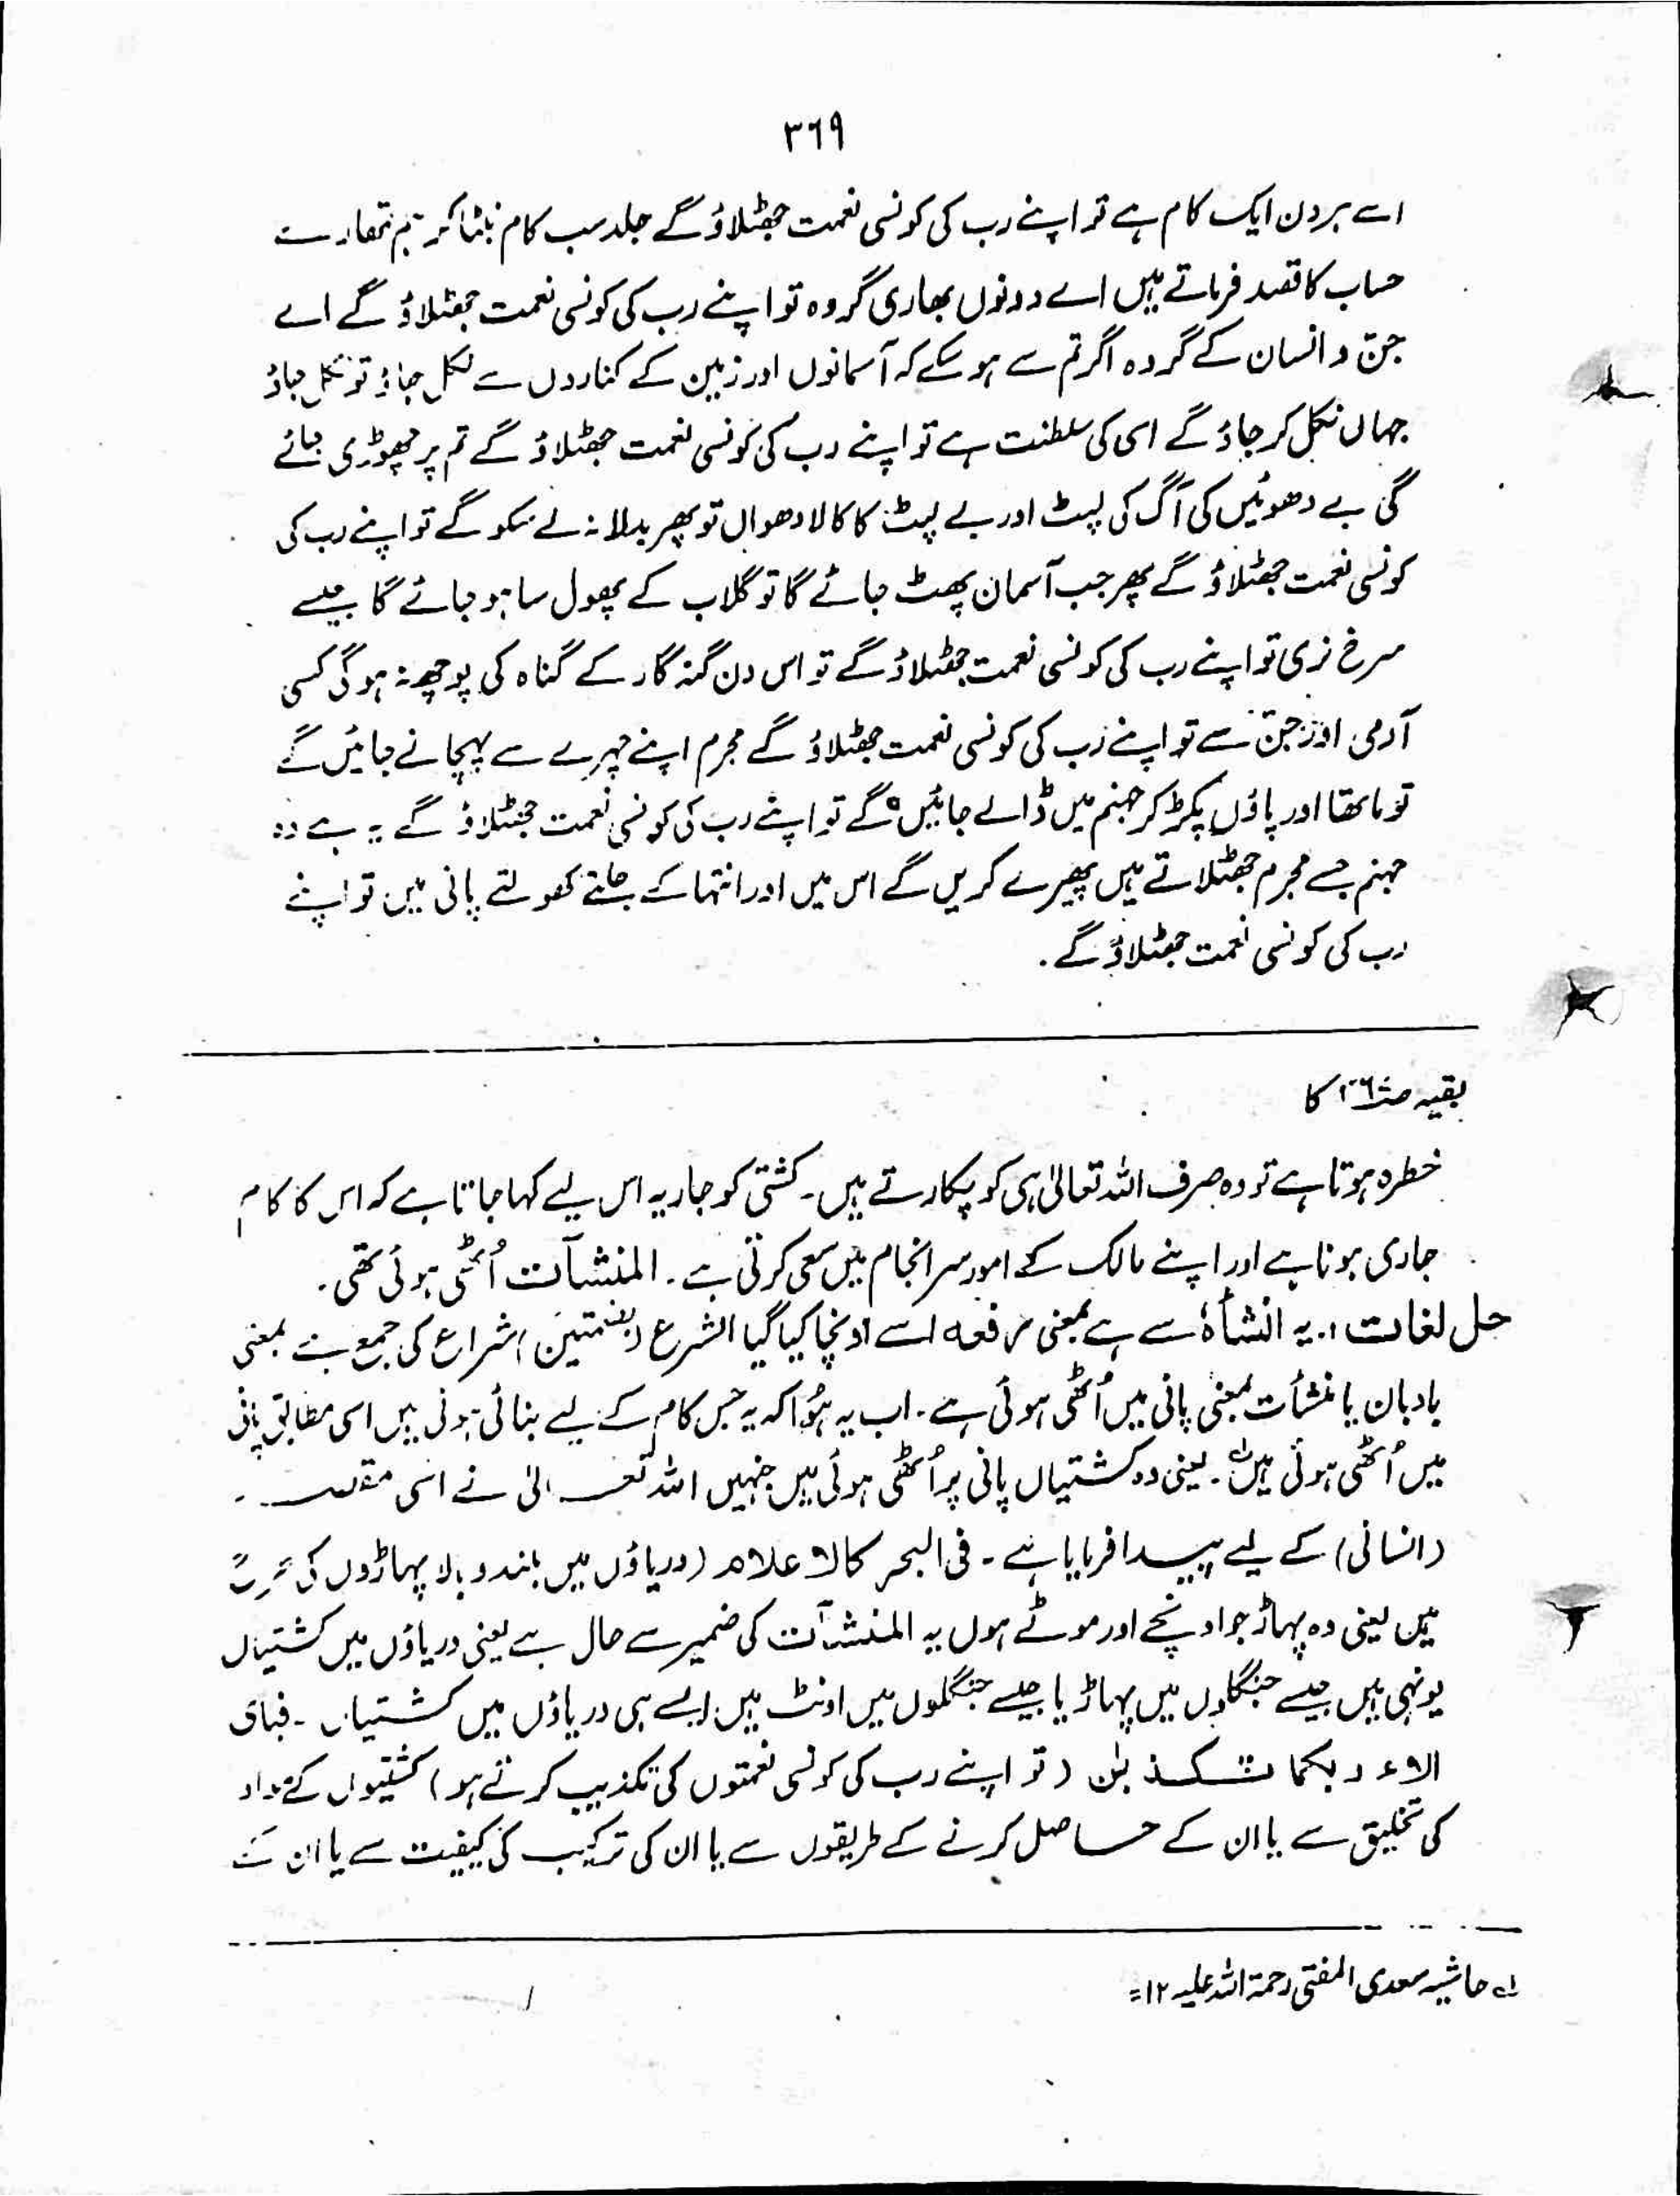 ۳۶۹
اسے ہر دن ایک کام ہے تو اپنے رب کی کونسی نعمت جھٹلاؤ گے جلد سب کام نبٹا کر ہم تمھارے
حساب کا قصد فرماتے ہیں اے دونوں بھاری گروہ تو اپنے رب کی کونسی نعمت جھٹلاؤ گے اے
جنّ و انسان کے گروہ اگر تم سے ہو سکے کہ آسمانوں اور زمین کے کناروں سے نکل جاؤ تو نکل جاؤ
جہاں نکل کر جاؤ گے اسی کی سلطنت ہے تو اپنے رب کی کونسی نعمت جھٹلاؤ گے تم پر چھوڑی جائے
گی بے دھوئیں کی آگ کی لپٹ اور بے لپٹ کا کالا دھواں تو پھر بدلا نہ لے سکو گے تو اپنے رب کی
کونسی نعمت جھٹلاؤ گے پھر جب آسمان پھٹ جائے گا تو گلاب کے پھول سا ہو جائے گا جیسے
سرخ نری تو اپنے رب کی کونسی نعمت جھٹلاؤ گے تو اس دن گنہ گار کے گناہ کی پوچھ نہ ہو گی کسی
آدمی اور جنّ سے تو اپنے رب کی کونسی نعمت جھٹلاؤ گے مجرم اپنے چہرے سے پہچانے جائیں گے
تو ماتھا اور پاؤں پکڑ کر جہنم میں ڈالے جائیں گے تو اپنے رب کی کونسی نعمت جھٹلاؤ گے یہ ہے وہ
جہنم جسے مجرم جھٹلاتے ہیں پھیرے کریں گے اس میں اور انتہا کے جلتے کھولتے پانی میں تو اپنے
رب کی کونسی نعمت جھٹلاؤ گے ۔
بقیہ کا
خطرہ ہوتا ہے تو وہ صرف اللہ تعالیٰ ہی کو پکارتے ہیں۔ کشتی کو جاریہ اس لیے کہا جاتا ہے کہ اس کا کام
جاری ہونا ہے اور اپنے مالک کے امور سرانجام میں سعی کرتی ہے ۔ المنشآت اُٹھی ہوئی تھی ۔
حل لغات :۔ یہ انشأہٗ سے ہے بمعنی رفعہ اسے اونچا کیا گیا الشرع (بضمتین) شراع کی جمع ہے بمعنی
بادبان یا منشأت بمعنی پانی میں اُٹھی ہوئی ہے ۔ اب یہ ہُوا کہ یہ جس کام کے لیے بنائی ہوئی ہیں اسی مطابق پانی
میں اُٹھی ہوئی ہیں لہ ۔ یعنی وہ کشتیاں پانی پر اُٹھی ہوئی ہیں جنہیں اللہ تعالیٰ نے اسی مقصد
(انسانی) کے لیے پیدا فرمایا ہے ۔ فی البحر کالاعلام (دریاؤں میں بلند و بالا پہاڑوں کی طرح
ہیں یعنی وہ پہاڑ جو اونچے اور موٹے ہوں یہ المنشآت کی ضمیر سے حال ہے یعنی دریاؤں میں کشتیاں
یونہی ہیں جیسے جنگلوں میں پہاڑ یا جیسے جنگلوں میں اونٹ ہیں ایسے ہی دریاؤں میں کشتیاں ۔ فبای
الاء ربکما تکذبٰن (تو اپنے رب کی کونسی نعمتوں کی تکذیب کرتے ہو) کشتیوں کے مواد
کی تخلیق سے یا ان کے حاصل کرنے کے طریقوں سے یا ان کی ترکیب کی کیفیت سے یا ان کے
لہ حاشیہ سعدی المفتی رحمۃ اللہ علیہ ۱۲=